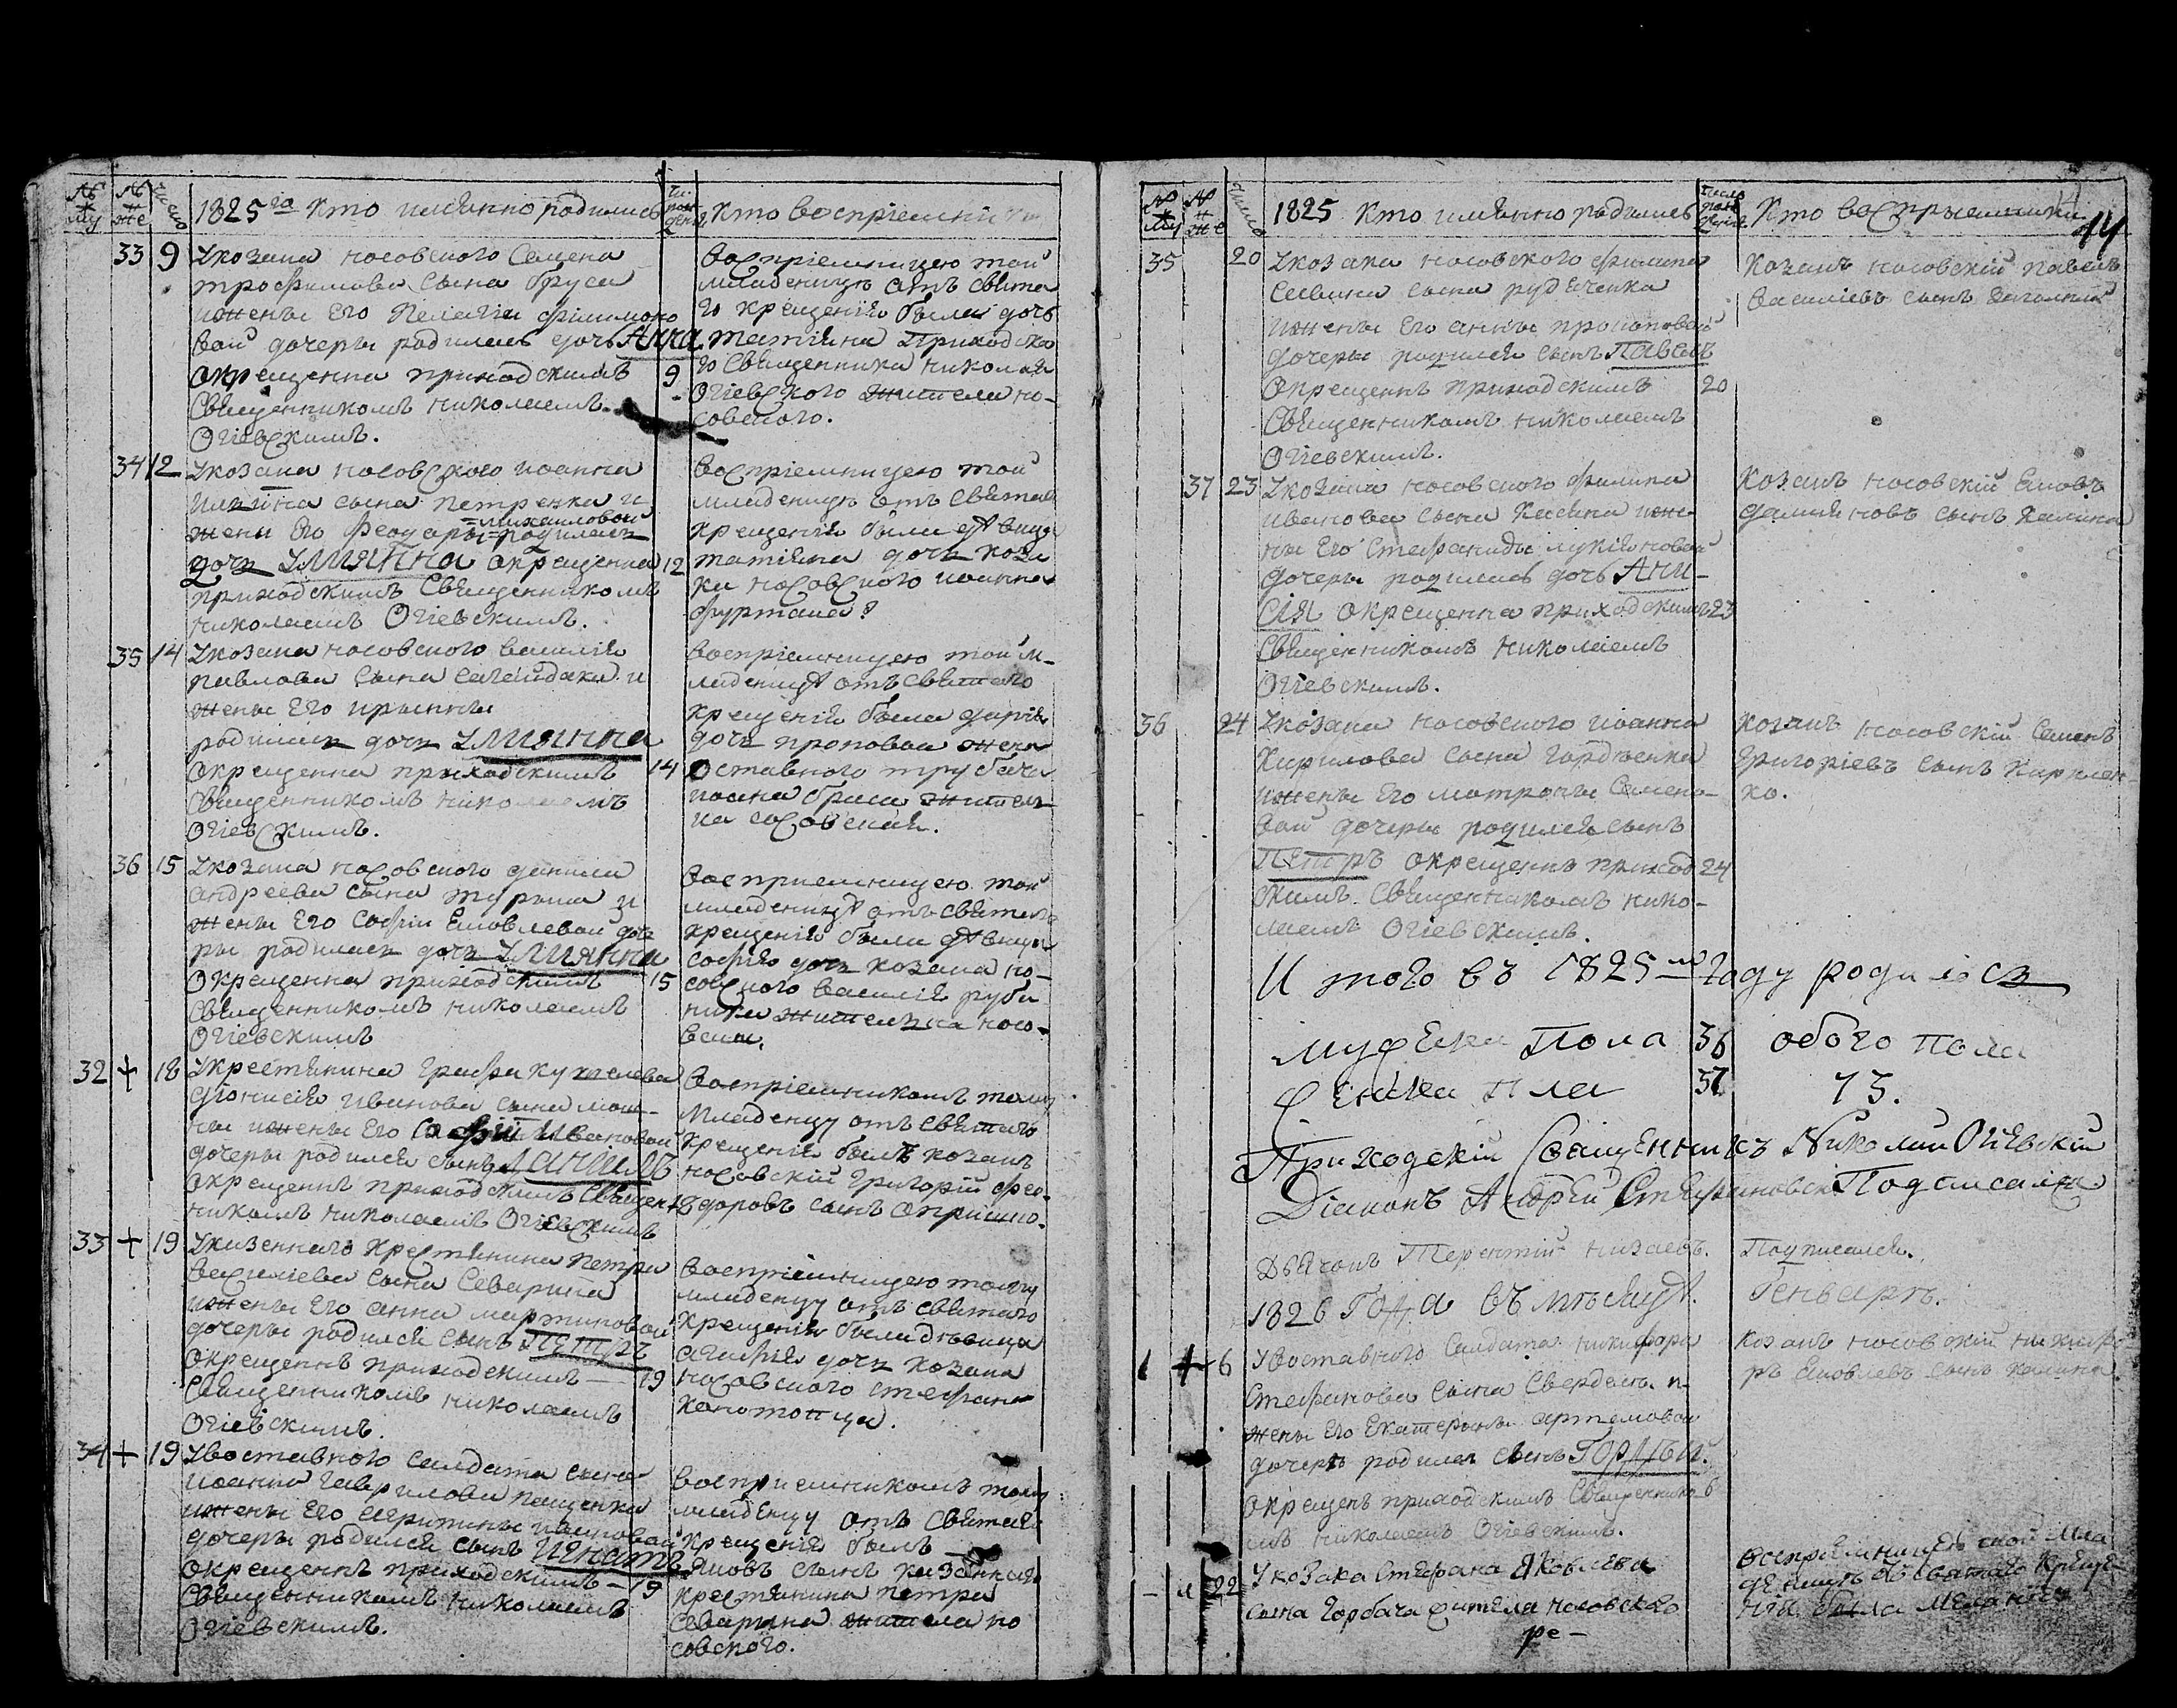 № му
№ же
число
1825 го Кто имянно родились
Кто воспріемники
33 9 Укозака носовского Семена
трофимова сына бруса
ижены Его Пелагіи филимоно
вой дочеры родилась дочь Анна
окрещенна приходскимъ 9
Священникомъ николаемъ
Огіевскимъ.
воспріемницею той
младеницѣ отъ свята
го крещенія была дочь
татіяна приходско
го Священника николая
Огіевского жителя но-
совского.
34 12 Укозака носовского иоанна
сына петренка и
михаиловой
жены Его родилась
дочь Улиянна окрещенна 12
приходскимъ Священникомъ
николаемъ Огіевскимъ.
воспріемницею той
младеницѣ отъ святаго
крещенія была дѣвица
татіяна дочь коза
ка носовского иоанна
35 14 Укозака носовского василія
павлова сына сагайдака и
жены Его ирынны
родилась дочь Улиянна
окрещенна приходскимъ 14
Священникомъ николаемъ
Огіевскимъ.
воспріемницею той м-
ладеницѣ отъ святаго
крещенія была дарія
дочь жена
оставного трубача
иоана бруса жител-
ка носовская.
36 15 Укозака носовского данила
андреева сына и
жены Его софіи Еяковлевой доче
ры родилась дочь Улиянна
Окрещенна приходскимъ 15
Священникомъ николаемъ
Огіевскимъ
воспріемницею той
младеницѣ отъ святаго
крещенія была дѣвица
софія дочь козака но-
совского василія
жителька носо-
вская.
32 + 18 Укрестянина графа
діонисія иванова сына
ижены Его Софіи Ивановой
дочеры родился сынъ Даниилъ
окрещенъ приходскимъ Священ 18
никомъ николаемъ Огіевскимъ
воспріемникомъ тому
младенцу отъ святаго
крещенія былъ козакъ
носовскій григорій фео-
доровъ сынъ
33 + 19 Указенного крестянина петра
василіева сына Северина
ижены Его анна мартиновой
дочеры родился сынъ Петръ
окрещенъ приходскимъ 19
Священникомъ николаемъ
Огіевскимъ.
воспріемницею тому
младенцу отъ святаго
крещенія была дѣвица
агафія дочь козака
носовского стефана
конотопца.
34 + 19 Увоставного салдата сына
иоанна гаврилова пащенка
ижены Его
дочеры родился сынъ Игнатъ
окрещенъ приходскимъ 19
Священникомъ николаемъ
Огіевскимъ.
воспріемникомъ тому
младенцу отъ святаго
крещенія былъ
яковъ сынъ казенного
крестянина петра
Северина жителя но
совского.
№ му
№ же
число
1825 Кто имянно родились
число рожденія
Кто воспріемники
14
35 20 Укозака носовского филипа
Саввина сына рудѣченка
ижены Его анны прокоповой
дочеры родился сынъ Павелъ
Окрещенъ приходскимъ 20
Священникомъ николаемъ
Огіевскимъ.
Козакъ носовскій павелъ
василіевъ сынъ
37 23 Укозака носовского филипа
иванова сына ияже-
ны Его Стефаниды лукіяновой
дочеры родилась дочь Ани-
сія окрещенна приходскимъ 23
Священникомъ николаемъ
Огіевскимъ.
Козакъ носовскій Еяковъ
даміяновъ сынъ Калина
36 24 Укозака носовского иоанна
Кирилова сына гордѣенка
ижены Его матроны Семено-
вой дочеры родился сынъ
Петръ окрещенъ приход 24
скимъ Священникомъ нико-
лаемъ Огіевскимъ.
Козакъ носовскій Семенъ
григоріевъ сынъ Кириен-
ко.
И того въ 1825 мъ году родилось
мужска Пола 36 обого пола
женска П ла 37 73.
Приходскій Священникъ Николай Огіевскій
Діаконъ Андрей Стефановскій Подписался
Дьячокъ Терентій низаевъ. Подписался.
1826 Года въ мѣсяцѣ. Генварѣ.
1 + 6 Увоставного Салдата никифора
Стефанова сына и
жены Его Екатерины артемовой
дочеръ родился сынъ Гордѣй.
окрещенъ приходскимъ Священнико 6
мъ николаемъ Огіевскимъ.
Козакъ носовскій никифо
ръ Еяковлевъ сынъ калина
22 Укозака Стефана Яковлева
сына Горбача жителя носовского
ре-
воспріемницею сной мла
деницѣ от святаго креще-
нія была Меланія